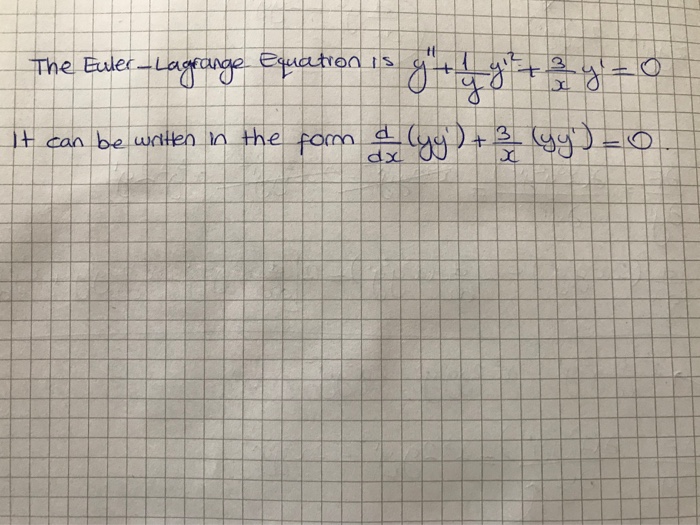 The Euler-Lagrange Equation is y'' + 1/y y'² + 3/x y' = 0
It can be written in the form d/dx (yy') + 3/x (yy') = 0.